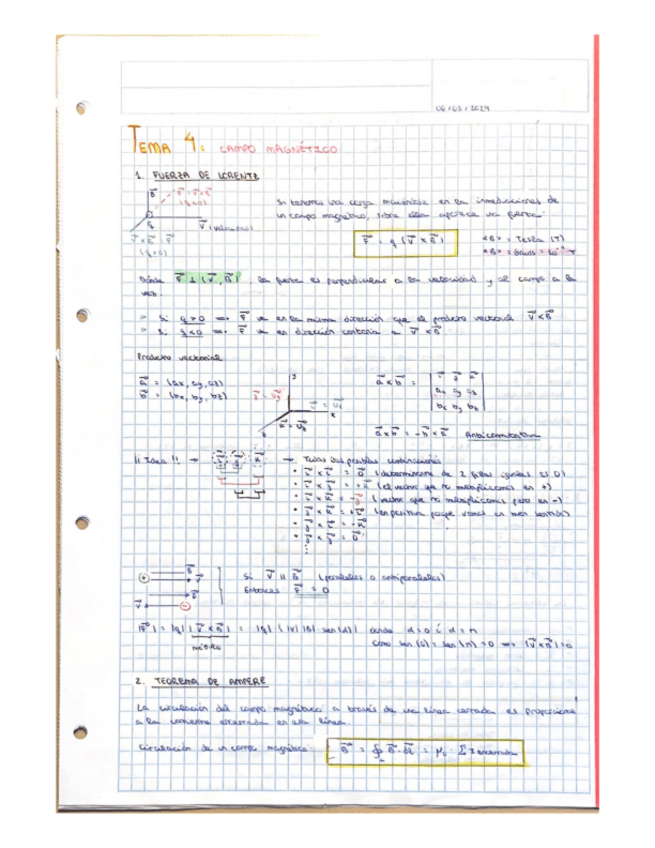 06/03/2024
TEMA 4: CAMPO MAGNÉTICO
1. FUERZA DE LORENTZ
Si tenemos una carga moviéndose en las inmediaciones de
un campo magnético, sobre ella aparece una fuerza.
V⃗ (velocidad)
(q<0)
F⃗ = q (V⃗ x B⃗)
<B> = Tesla (T)
<B> = Gauss = 10⁻⁴ T
Dónde F⃗ ⊥ (V⃗, B⃗), la fuerza es perpendicular a la velocidad y al campo a la
vez.
> Si q>0 => F⃗ va en la misma dirección que el producto vectorial V⃗ x B⃗
> Si q<0 => F⃗ va en dirección contraria a V⃗ x B⃗
Producto vectorial
a⃗ = (ax, ay, az)
b⃗ = (bx, by, bz)
a⃗ x b⃗ =
ax ay az
bx by bz
a⃗ x b⃗ = - b⃗ x a⃗ Anticonmutativo
¡¡ Idea !! → → Todas las posibles combinaciones
• i⃗ x i⃗ = 0⃗ (determinante de 2 filas iguales es 0)
• i⃗ x j⃗ = +k⃗ (el vector que no multiplicamos en +)
• i⃗ x k⃗ = -j⃗ (vector que no multiplicamos pero en -)
Si V⃗ || B⃗ (paralelos o antiparalelos)
Entonces F⃗ = 0
|F⃗| = |q| |V⃗ x B⃗| = |q| (|V| |B| · sen(α)) donde α = 0 ó α = π
módulo
Como sen(0) = sen(π) = 0 => |V⃗ x B⃗| = 0
2. TEOREMA DE AMPERE
La circulación del campo magnético a través de una línea cerrada es proporcional
a la corriente encerrada en esa línea.
Circulación de un campo magnético: B⃗ = ∮ B⃗ · dl⃗ = μ₀ · Σ I encerrada